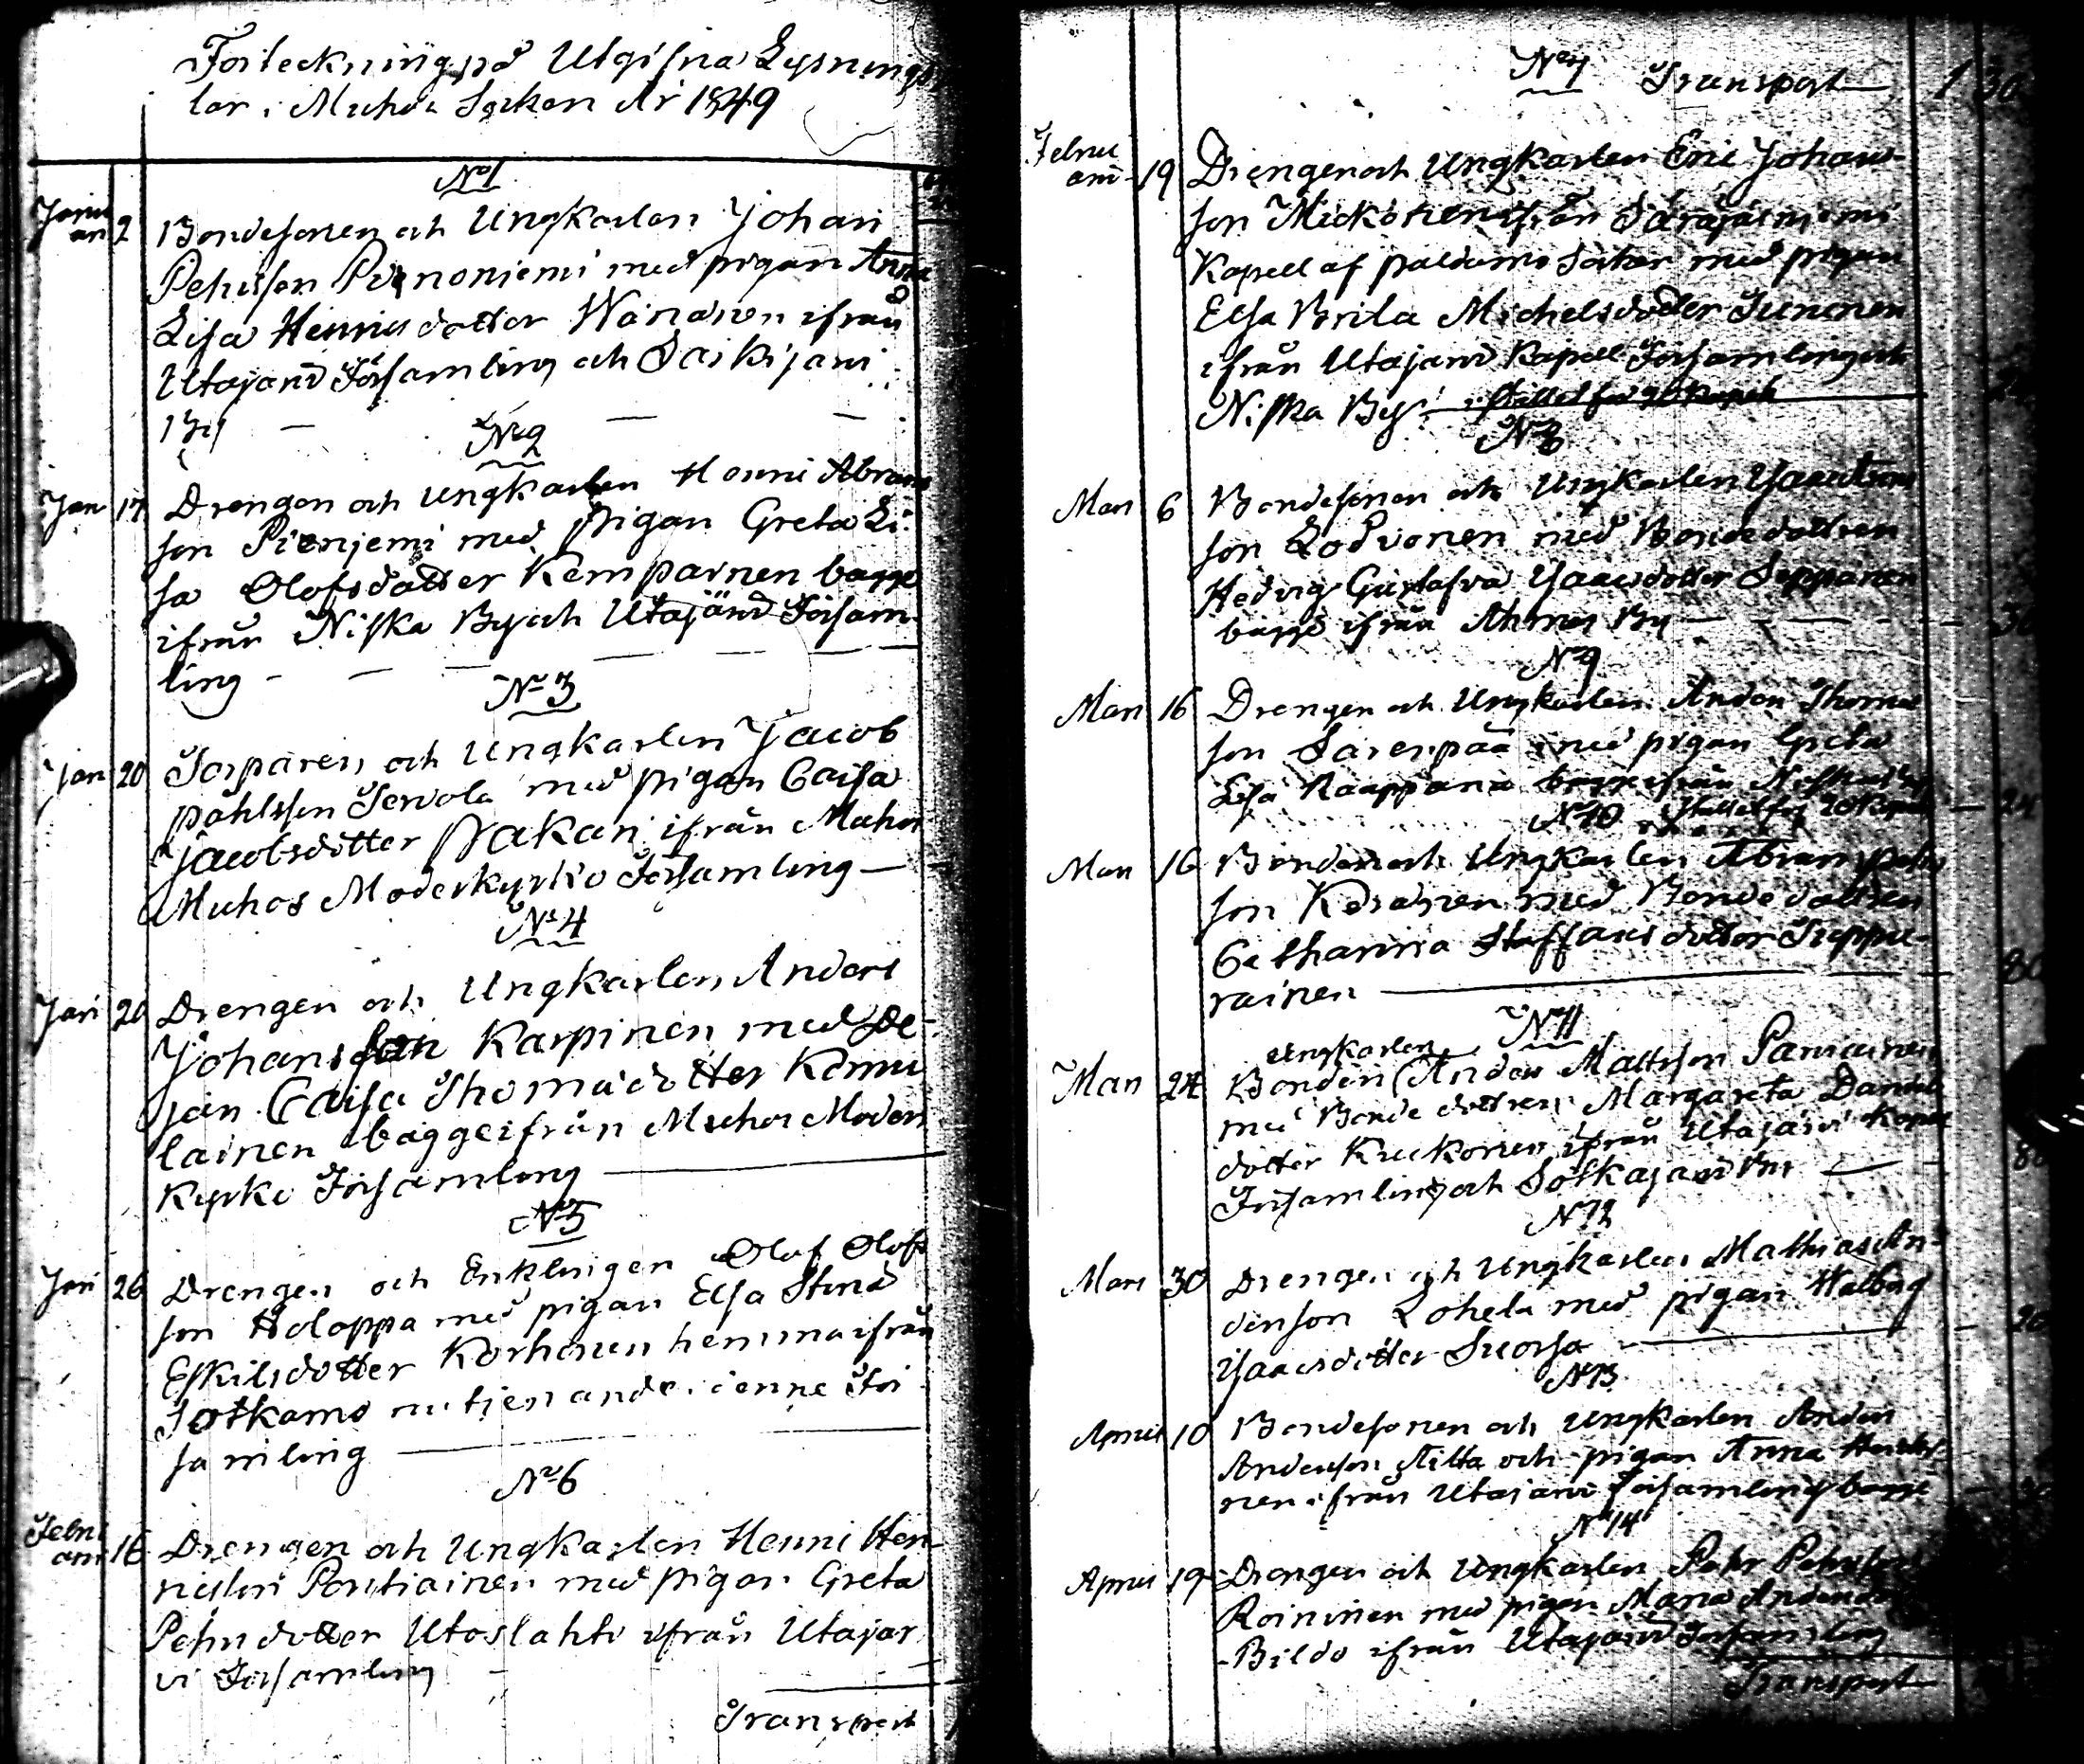 Förteckning på Utgifna Lysnings
lar i Muhos Socken År 1849
No 1
Janu
ari 2 Bondesonen och Ungkarlen Johan
Pehrsson Pienoniemi med pigan Anna
Lisa Henricsdotter Wänänen ifrån
Utajärvi Församling och Särkijärvi
By
No 2
Jan 17 Drengen och Ungkarlen Henric Abrams
son Pieniemi med Pigan Greta Li
sa Olofsdotter Kemparnen bagge
ifrån Niska By och Utajärvi Försam
ling
No 3
Jan 20 Torparen och Ungkarlen Jacob
Pahlsson Tervola med pigan Caisa
Jacobsdotter Pakari ifrån Muhos
Muhos Moderkyrko Församling
No 4
Jan 20 Drengen och Ungkarlen Anders
Johansson Karpinen med De
jan Caisa Thomasdotter Konnu
lainen bagge ifrån Muhos Moder
Kyrko Församling
No 5
Jan 26 Drengen och Enklingen Olof Olofs
son Holoppa med pigan Elsa Stina
Eskilsdotter Korhonen hemma ifrån
Sotkamo nu tjenande i denne För
samling
No 6
Febru
ari 16 Drengen och Ungkarlen Henric Hen
ricsson Pontiainen med pigan Greta
Pehrsdotter Utoslahti ifrån Utajär
vi Församling
Transport
No 7 Transport 1 30
Febru
ari 19 Drengen och Ungkarlen Eric Johans
son Mickonen ifrån Säräjäsniemi
Kapell af Paldamo Socken med pigan
Elsa Brita Michelsdotter Junonen
ifrån Utajärvi Kapell Församling och
Niska By
No 8
Mars 6 Bondesonen och Ungkarlen
son Lodvonen med Bondedottren
Hedvig Gustafva Isaacsdotter Seppänen
bagge ifrån Ahmas By 30
No 9
Mars 16 Drengen och Ungkarlen Anders Thomas
son Sarenpää med pigan Greta
Lisa Kaappana bagge ifrån Niska By
No 10
24
Mars 16 Bonden och Ungkarlen Abram Pehrs
son Keränen med Bondedottren
Catharina Staffansdotter Tuppu
rainen 80
No 11
Ungkarlen
Mars 24 Bonden Anders Mattsson Parviainen
med Bonde dottren Margareta Daniels
dotter Kuckonen ifrån Utajärvi Kapell
Församling och Sotkajärvi By 80
No 12
Mars 30 Drengen och Ungkarlen Mathias An
dersson Lohela med pigan Walborg
Isaacsdotter Suorsa 20
No 13
April 10 Bondesonen och Ungkarlen Anders
Andersson Aitta och pigan Anna
nen ifrån Utajärvi Församling bagge
No 14
April 19 Drengen och Ungkarlen Pehr Pehrsson
Roininen med pigan Maria Andersdr
Bildo ifrån Utajärvi Församling
Transport